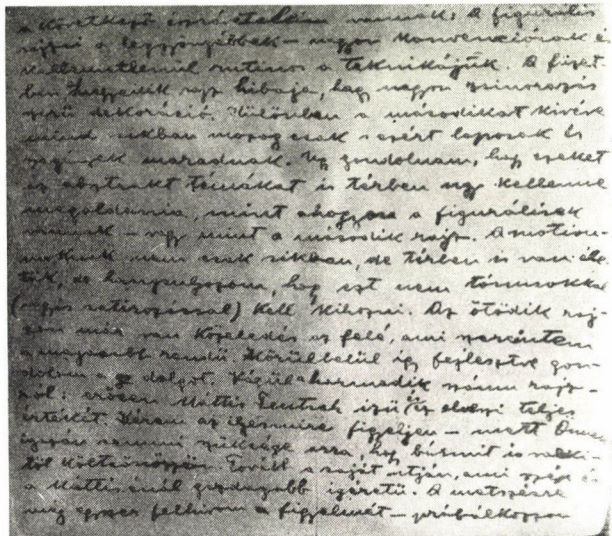 a következő észrevételeim vannak: A figurális
rajzai a leggyöngébbek – nagyon konvencionálisak é
kellemetlenül rutinos a technikájuk. A füzet
ben nagy hibája, hogy nagyon
szerű dekoráció. Különösen a másodikat kivéve
mind síkban mozog csak s ezért laposak és
maradnak. Úgy gondolnám, hogy ezeket
az absztrakt témákat is térben úgy kellene
megoldania, mint ahogyan a figurálisak
vannak – vagy mint a második rajz. A motívu-
moknak nem csak síkban, de térben is van éle
tük, de hangsúlyozom, hogy ezt nem tónusokkal
(vagyis satírozással) kell kihozni. Az ötödik raj-
zon már van közeledés az felé, ami szerintem
a magasabb rendű. Körülbelül így fejlesztve gon-
dolom a dolgot. Végül a harmadik számú rajz-
ról: erősen Mattis Teutsch ízű és elveszi teljes
értékét. Kérem az ilyesmire figyeljen – mert Önnek
igazán semmi szüksége arra, hogy bármit is
től kölcsönözzön. Tovább a saját útján, ami szép és
a Mattisénál gazdagabb ígéretű. A metszésre
még egyszer felhívom a figyelmét – próbálkozzon